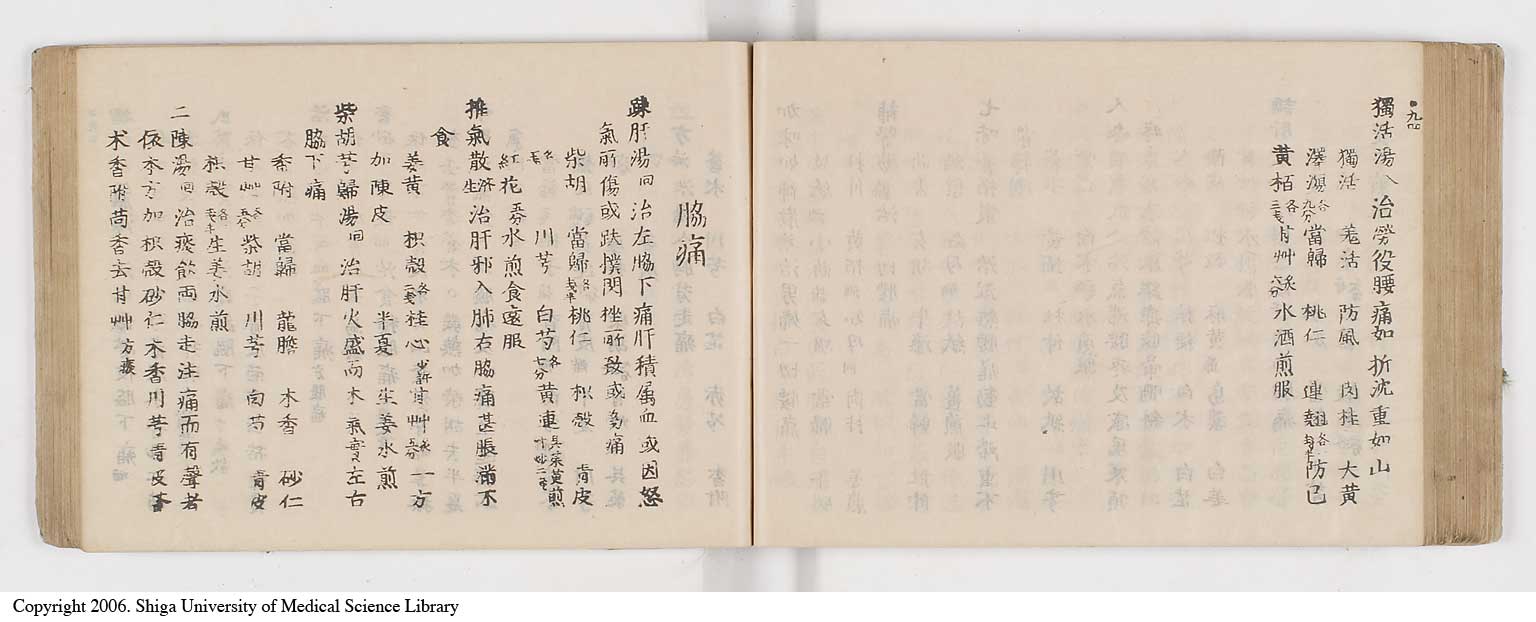 九四
獨活湯 治勞役腰痛如折沈重如山
獨活 羗活 防風 肉桂 大黄
澤瀉各九分當歸 桃仁 連翹各 防己
黄栢各 甘艸 水酒煎服
脇痛
疎肝湯回 治左脇下痛肝積属血或因怒
氣所傷或趺撲閃挫所致或多痛
柴胡 當歸各 桃仁 枳殻 青皮
川芎 白芍各七分 黄連
紅花五分水煎食遠服
推氣散 治肝邪入肺右脇痛甚脹滿不
食
姜黄 枳殻 桂心 甘艸 一方
加陳皮 半夏 生姜水煎
柴胡芎歸湯回 治肝火盛而木氣實左右
脇下痛
香附 當歸 龍膽 木香 砂仁
甘艸 柴胡 川芎 白芍 青皮
枳殻 生姜水煎
二陳湯回 治痰飲両脇走注痛而有聲者
依本方加枳殻砂仁木香川芎青皮蒼
术香附茴香去甘艸